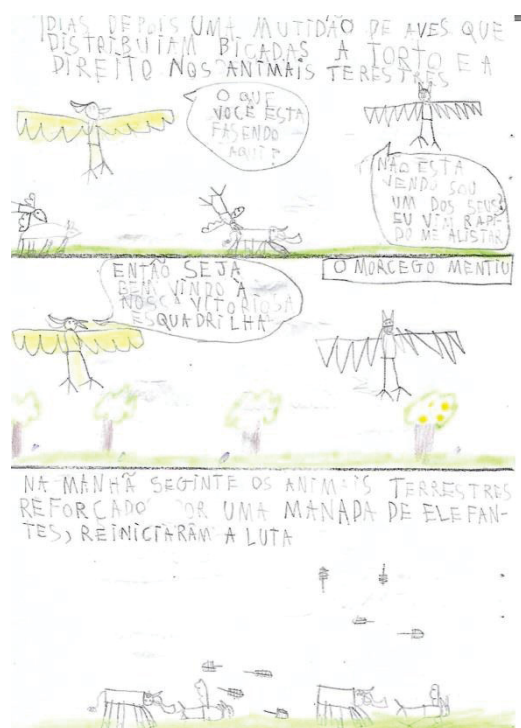 DIAS DEPOIS UMA MUTIDÃO DE AVES QUE
DISTRIBUIAM BICADAS A TORTO E A
DIREITO NOS ANIMAIS TERESTRES
O QUE
VOCÊ ESTA
FASENDO
AQUI?
NÃO ESTA
VENDO SOU
UM DOS SEUS
EU VIM RAPI
DO ME ALISTAR
ENTÃO SEJA
BEM VINDO À
NOSCA VITORIOSA
ESQUADRILHA
O MORCEGO MENTIU
NA MANHÃ SEGINTE OS ANIMAIS TERRESTRES
REFORCADOS POR UMA MANADA DE ELEFAN-
TES, REINICIARAM A LUTA